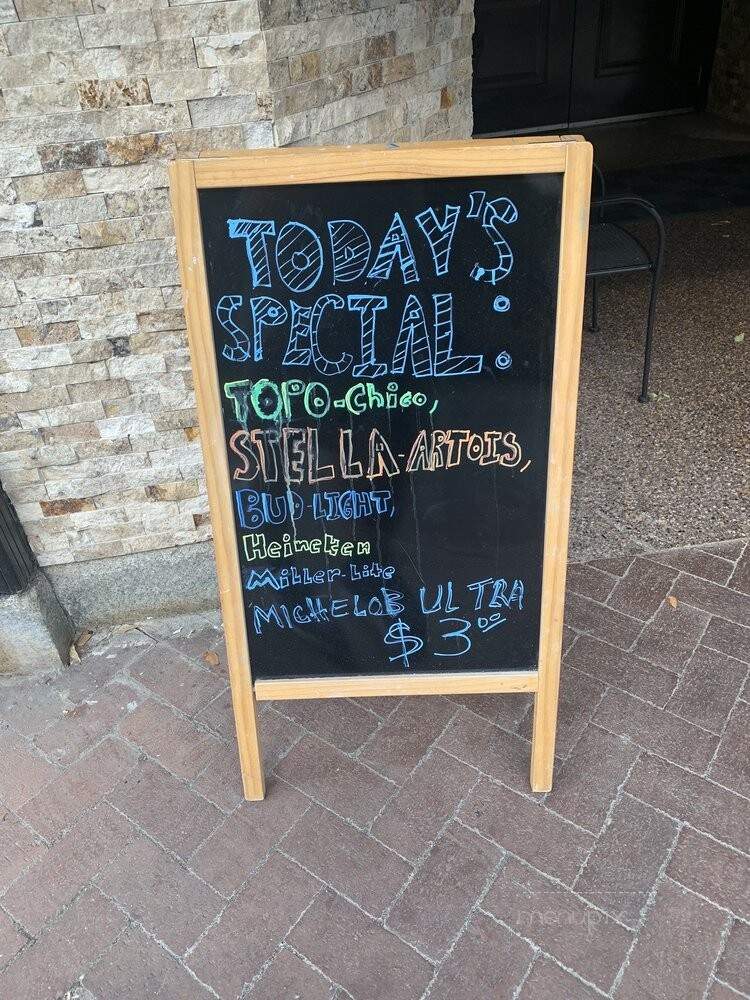 TODAY'S
SPECIAL:
TOPO-Chico,
STELLA-ARTOIS,
BUD-LIGHT,
Heineken
Miller-Lite
MICHELOB ULTRA
$3.00
menupix